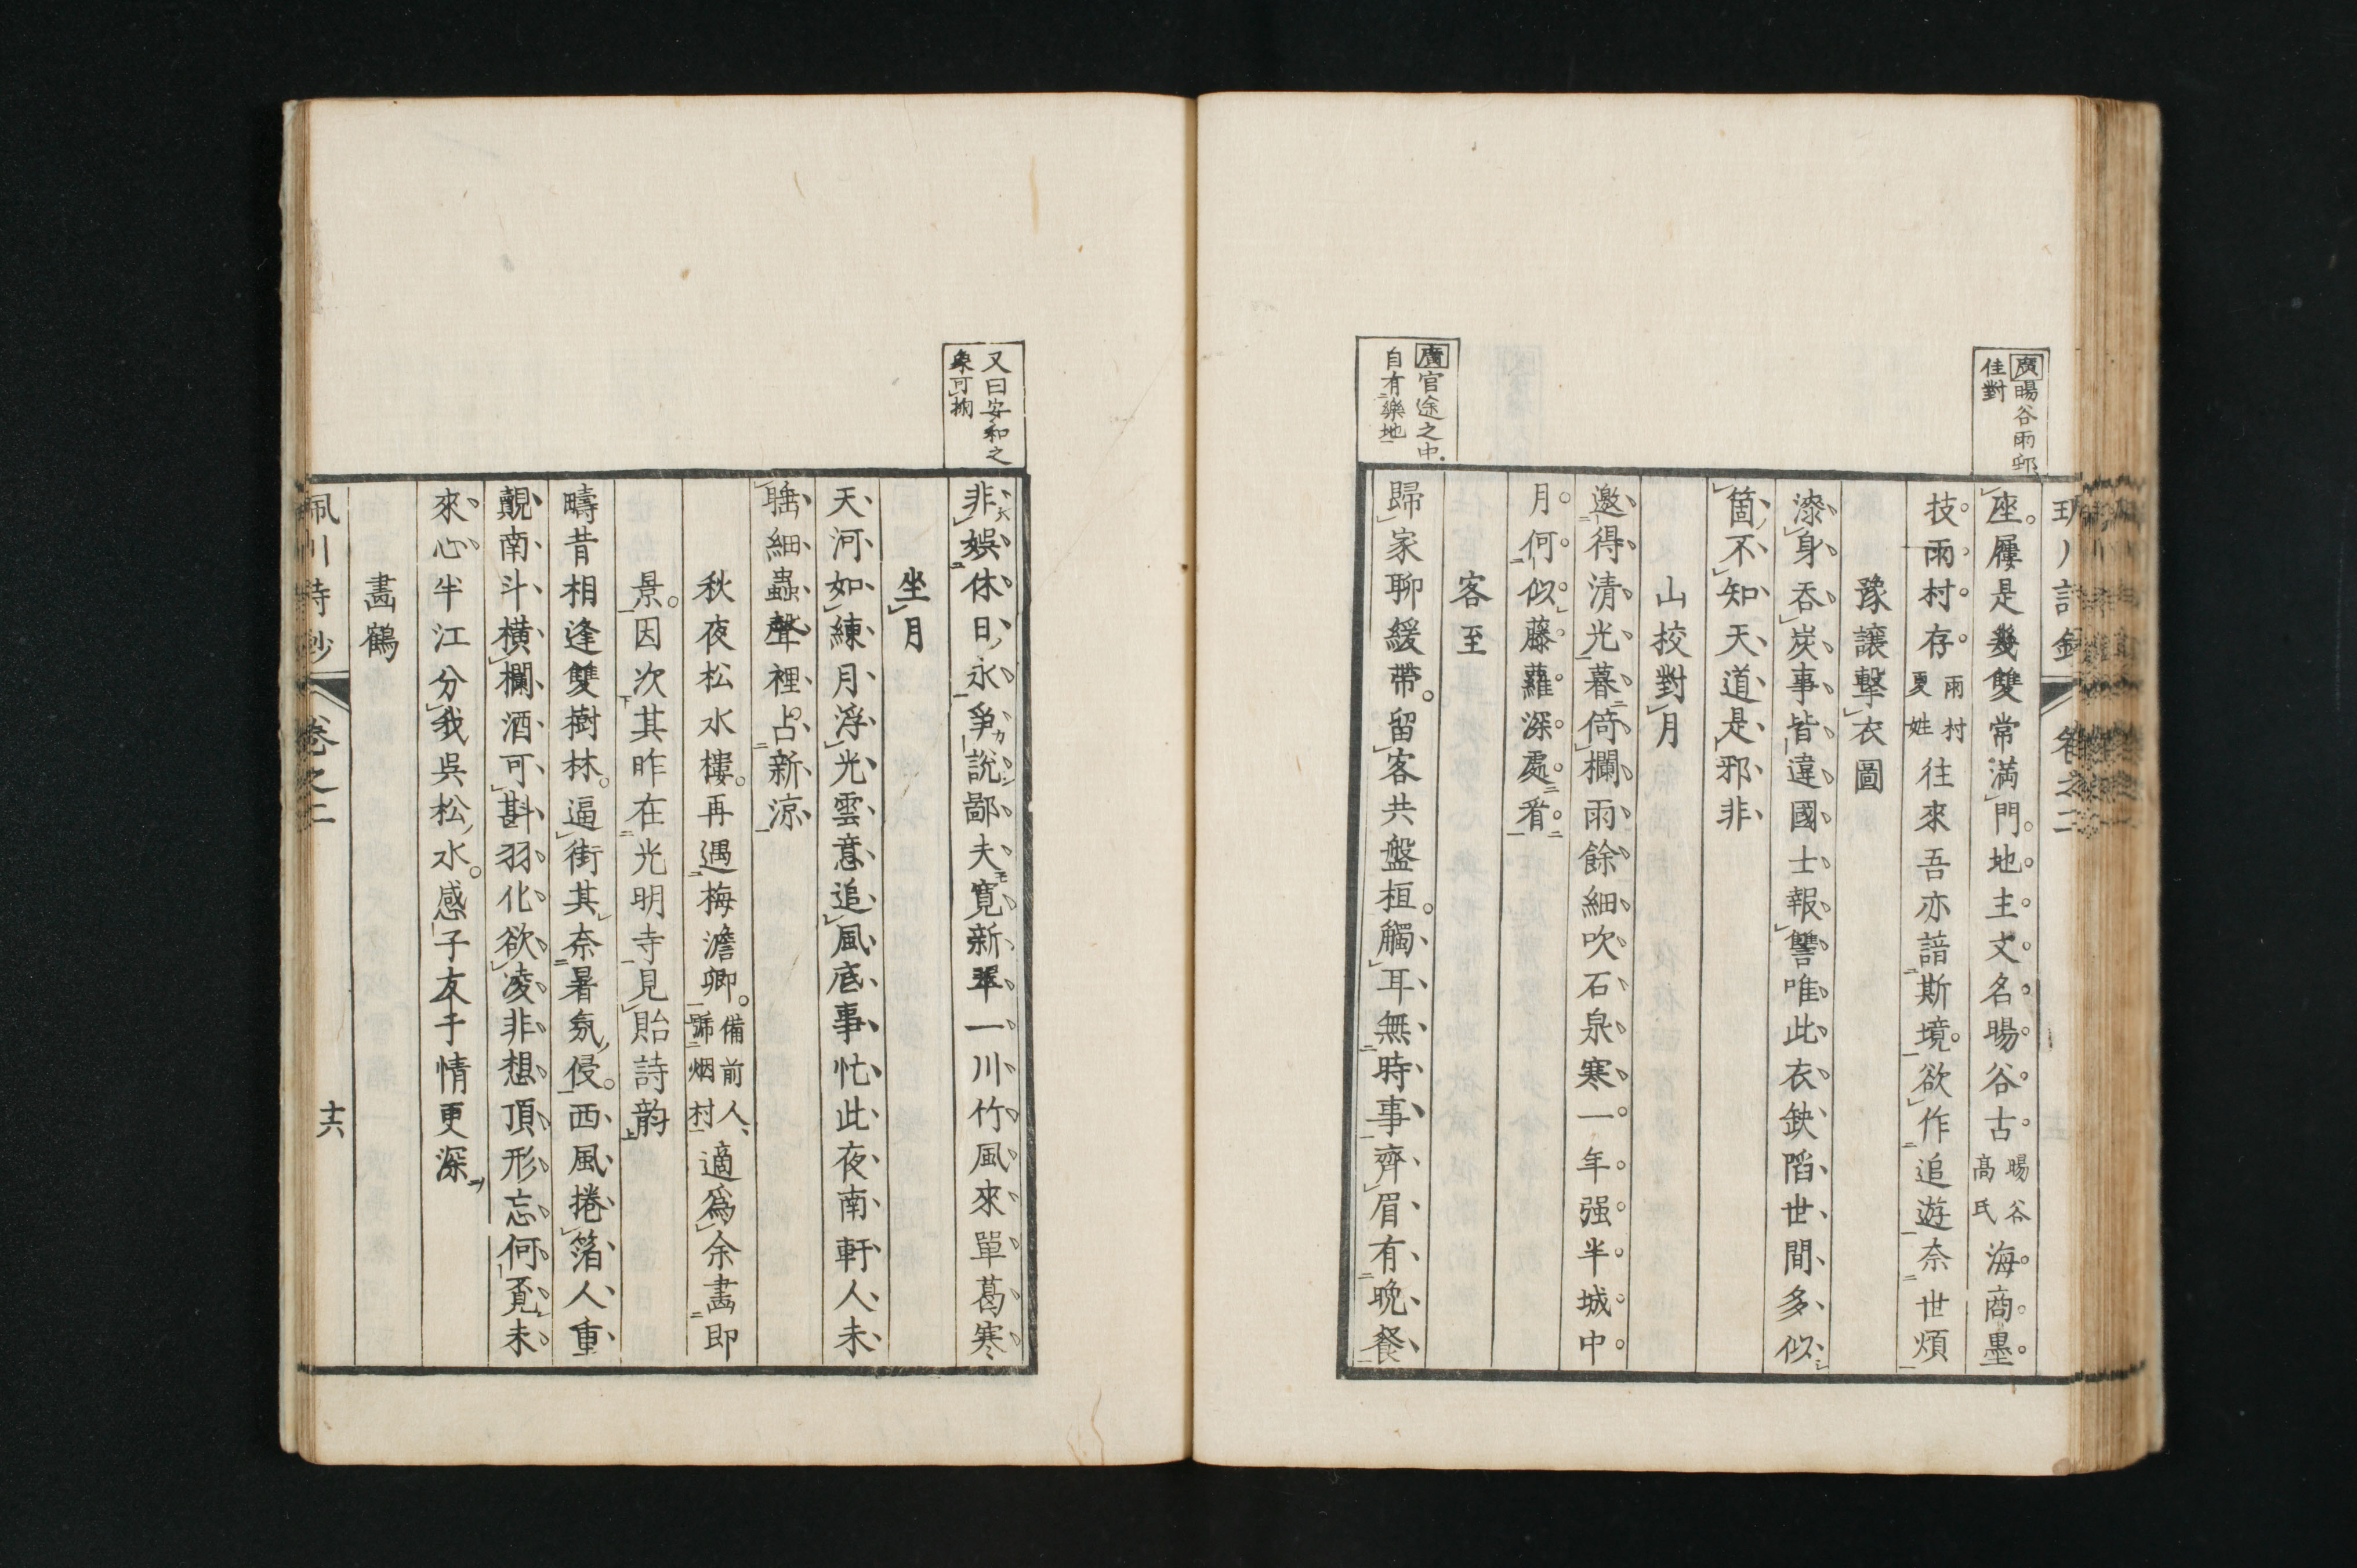 廣暘谷雨邨
佳對
座屨是幾雙常滿門地主文名暘谷古暘谷高氏海商墨
技雨村存雨村夏姓往來吾亦諳斯境欲作追遊奈世煩
豫讓擊衣圖
漆身吞炭事皆違國士報讐唯此衣缺陷世間多似
箇不知天道是邪非
山挍對月
邀得清光暮倚欄雨餘細吹石泉寒一年强半城中
月何似藤蘿深處看
客至
廣官途之中
自有樂地
歸家聊緩帶留客共盤桓觸耳無時事齊眉有晚餐
又曰安和之
象可掬
非娯休日永爭說鄙夫寬新翠一川竹風來單葛寒
坐月
天河如練月浮光雲意追風底事忙此夜南軒人未
睡細蟲聲裡占新涼
秋夜松水樓再遇梅澹卿備前人號烟村適爲余畫即
景因次其昨在光明寺見貽詩韵
疇昔相逢雙樹林逼街其奈暑氛侵西風捲箔人重
覿南斗橫欄酒可斟羽化欲凌非想頂形忘何覓未
來心半江分我吳松水感子友于情更深
畫鶴
佩川詩鈔 卷之二 十六